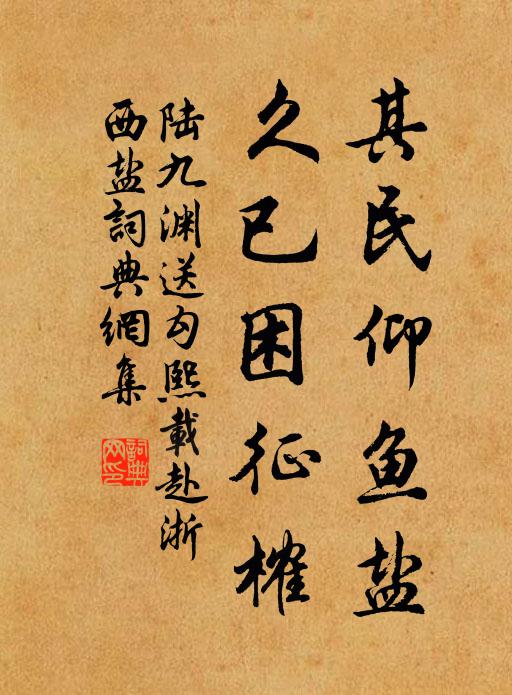 其民仰鱼盐
久已困征榷
陆九渊送勾熙載赴浙
西盐詞典網集
詞典网印